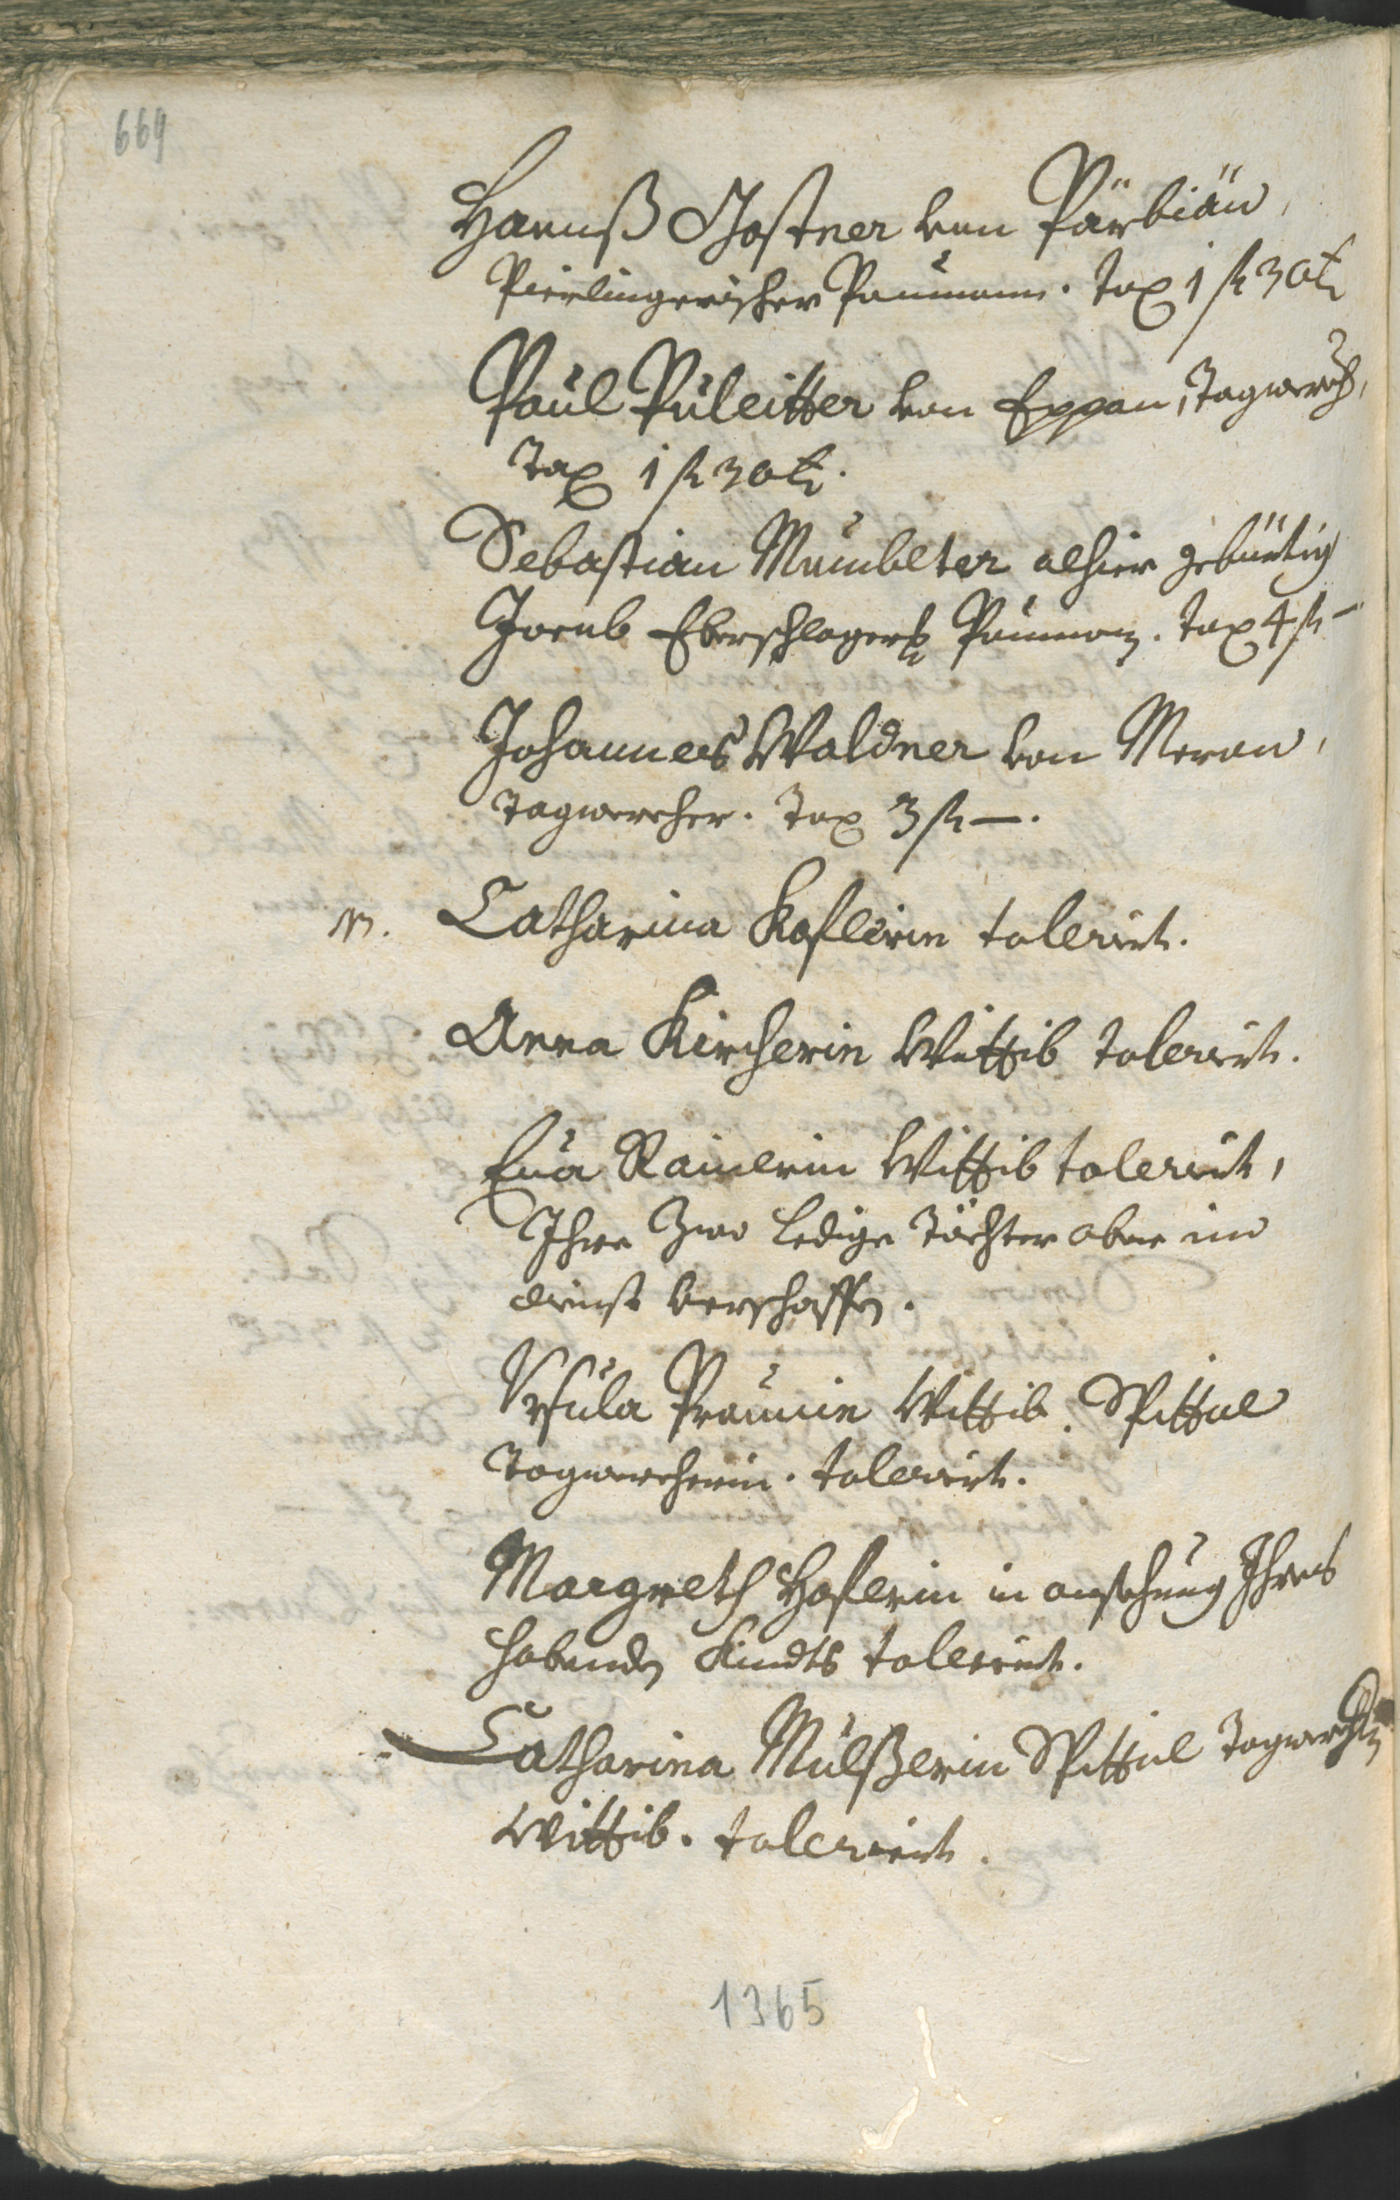 669
Hannß Gostner von Pärbiän,
Pierlingerischer Paumann. Tax 1 fl 30 kr
Paul Puleitter von Eppan, Tagwerch,
Tax 1 fl 30 kr.
Sebastian Mumbelter alhier gebürtig
Jacob Eberschlagers Paumañ. Tax 4 fl –
Johannes Waldner von Meran,
Tagwercher. Tax 3 fl –.
Catharina Koflerin tolerirt.
Anna Kircherin Wittib tolerirt.
Eua Rainerin Wittib tolerirt,
Ihre Zwo ledige Töchter aber in
dienst verschaffen.
Ursula Praunin Wittib. Spittal
Tagwercherin. tolerirt.
Margreth Hoflerin in ansehung Ihres
habenden Kindts tolerirt.
Catharina Mülßerin Spittal Tagwercherin
Wittib. tolerirt.
1365